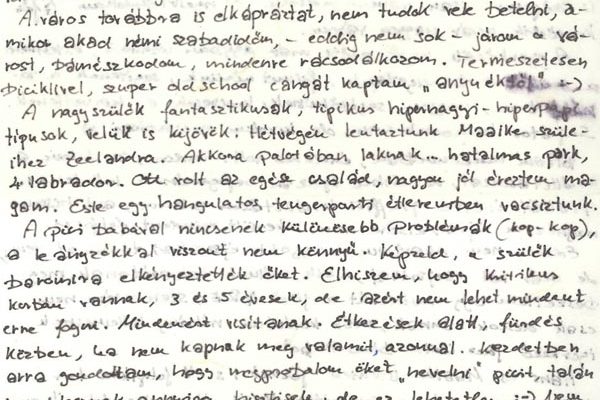 A város továbbra is elkápráztat, nem tudok vele betelni, a-
mikor akad némi szabadidőm, - eddig nem sok - járom a vá-
rost, bámészkodom, mindenre rácsodálkozom. Természetesen
biciklivel, szuper oldschool cangát kaptam „anyuéktól" :-)
A nagyszülők fantasztikusak, tipikus hipernagyi-hiperpapi
típusok, velük is kijövök. Hétvégén leutaztunk Maaike szüle-
ihez Zeelandra. Akkora palotában laknak... hatalmas park,
4 labrador. Ott volt az egész család, nagyon jól éreztem ma-
gam. Este egy hangulatos, tengerparti étteremben vacsiztunk.
A pici babával nincsenek különösebb problémák (kop-kop),
a leányzókkal viszont nem könnyű. Képzeld, a szülők
baromira elkényeztették őket. Elhiszem, hogy kritikus
korban vannak, 3 és 5 évesek, de azért nem lehet mindent
erre fogni. Mindenért visítanak. Étkezések alatt, fürdés
közben, ha nem kapnak meg valamit, azonnal. Kezdetben
arra gondoltam, hogy megpróbálom őket „nevelni" picit, talán